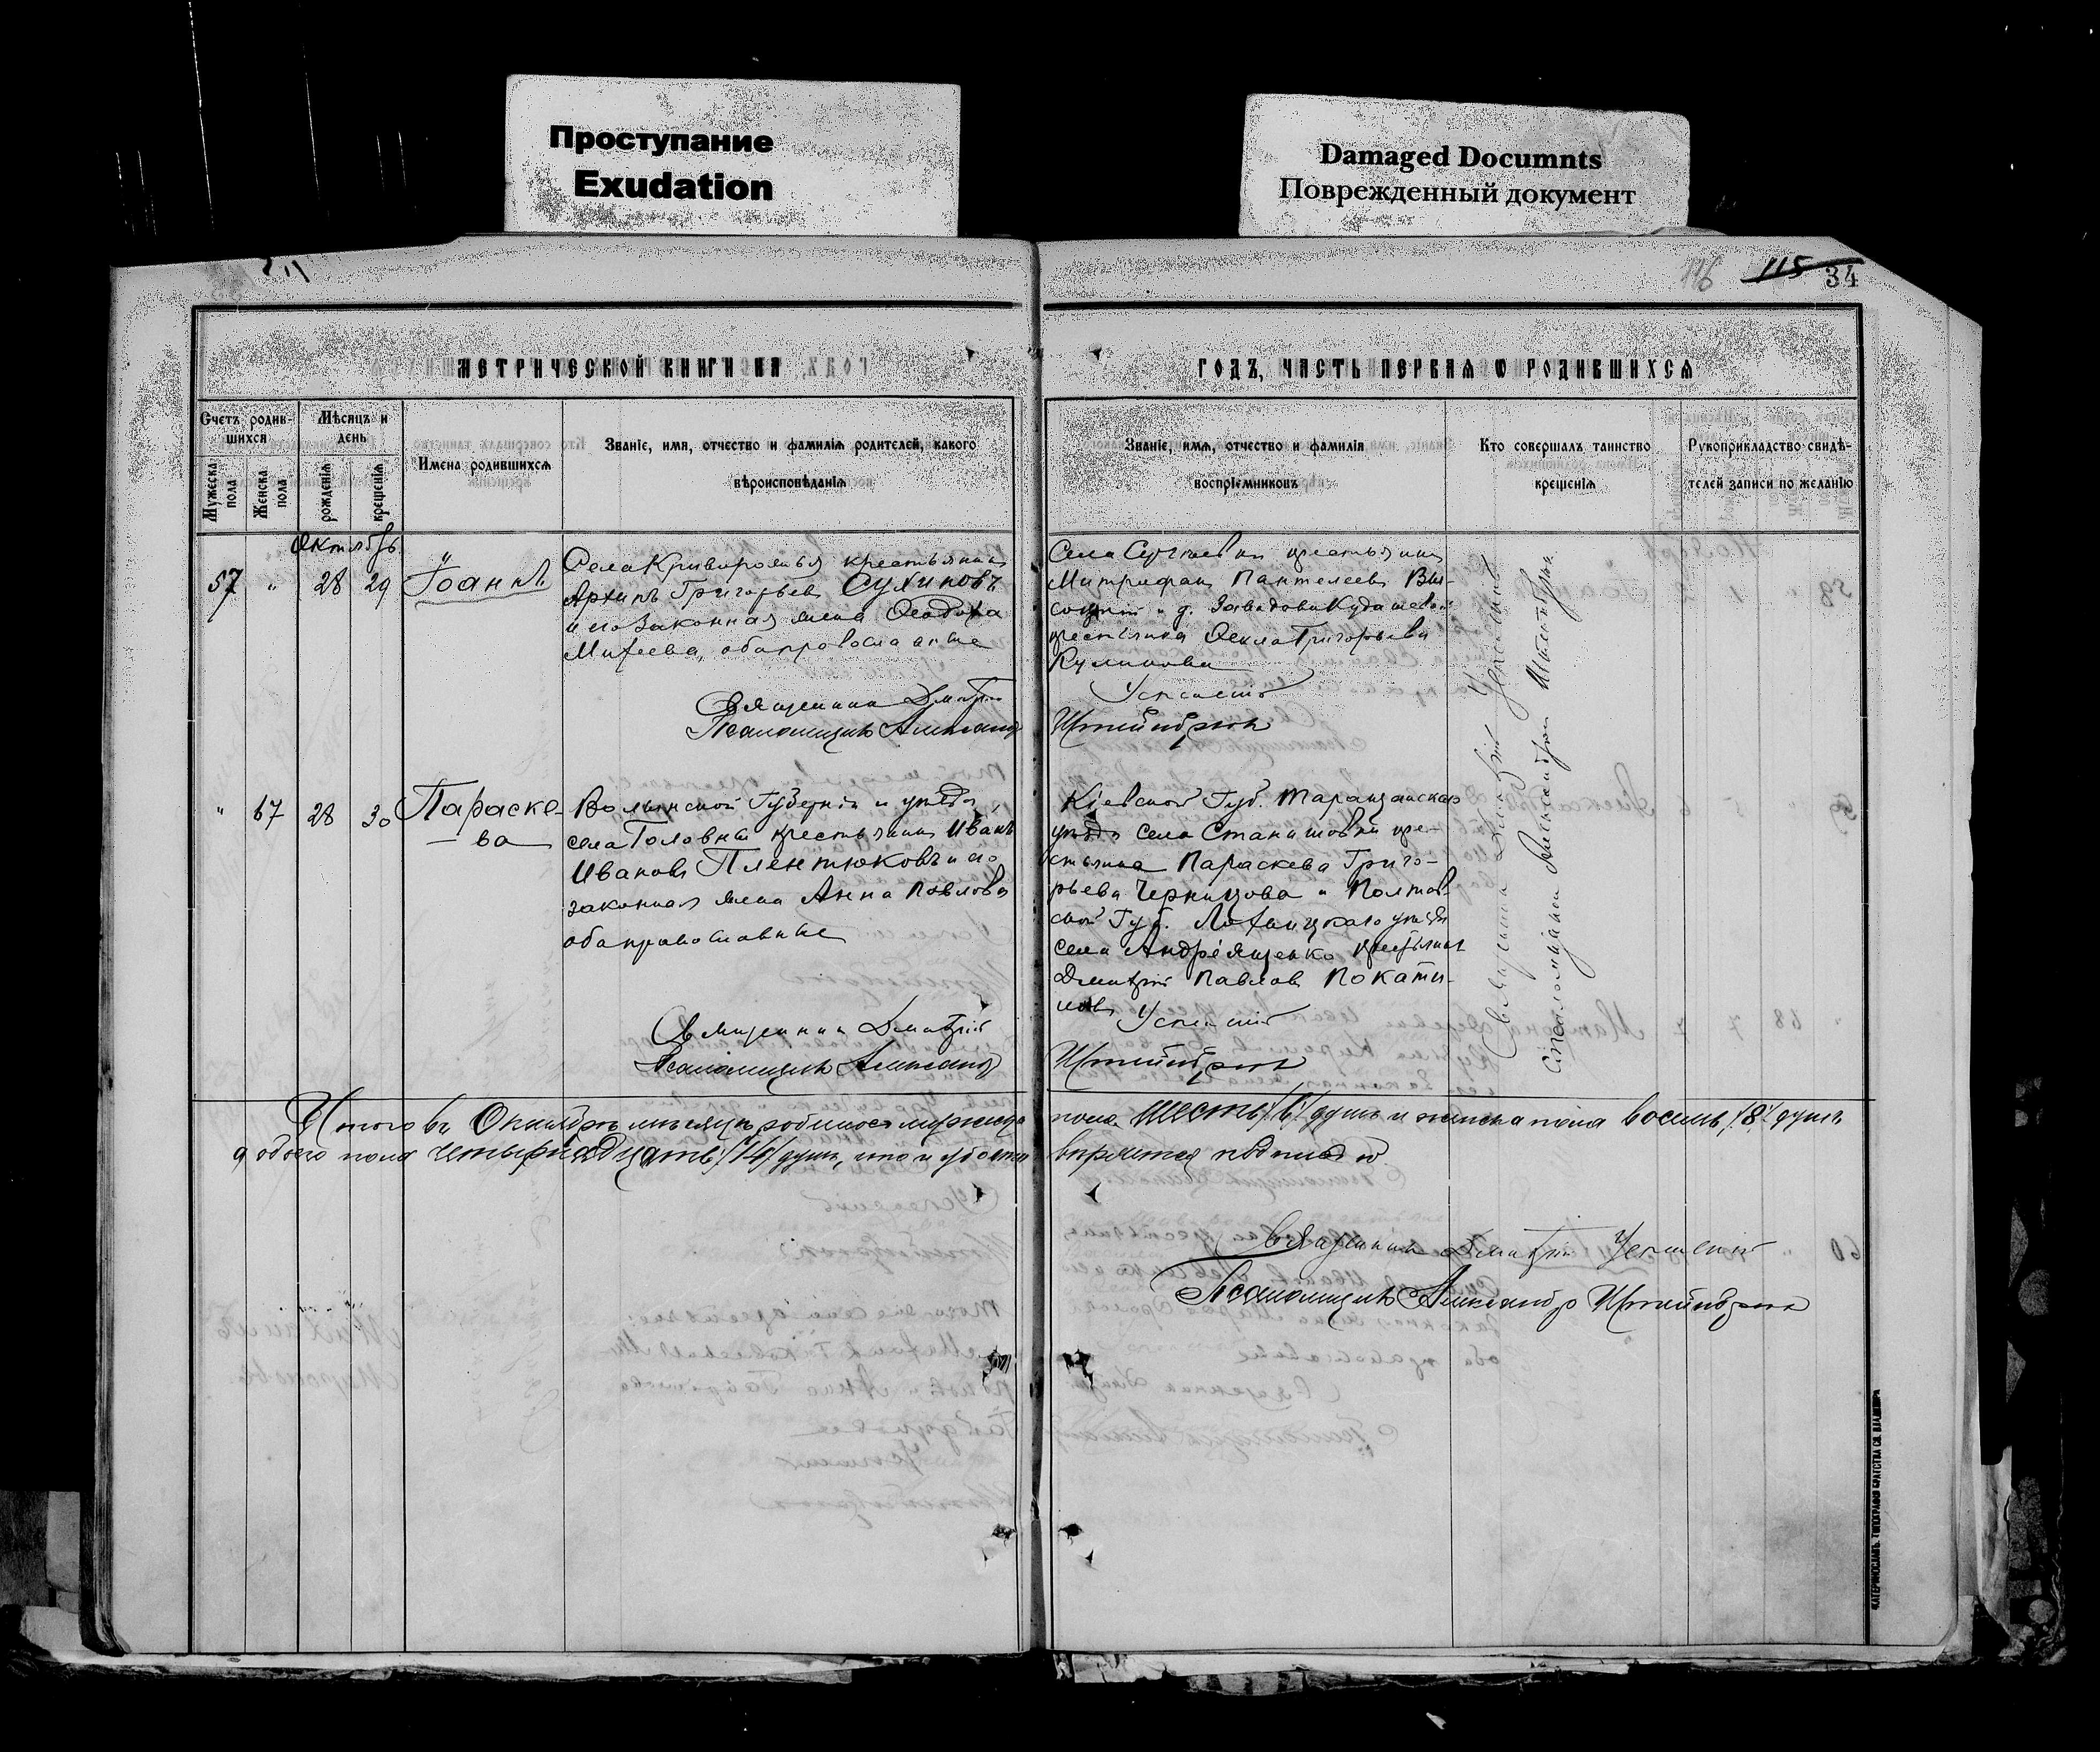 Проступание
Exudation
Damaged Documnts
Поврежденный документ
116 115 34
МЕТРИЧЕСКОЙ КНИГИ НА
ГОДЪ, ЧАСТЬ ПЕРВАЯ Ѡ РОДИВШИХСЯ
Счетъ родив-
шихся
Мужеска
пола
Женска
пола
Мѣсяцъ и
день
рожденія
крещенія
Имена родившихся
Званіе, имя, отчество и фамилія родителей, какого
вѣроисповѣданія
Званіе, имя, отчество и фамилія
воспріемниковъ
Кто совершалъ таинство
крещенія
Рукоприкладство свидѣ-
телей записи по желанію
Октябрь
57 " 28 29 Іоаннъ
Села Криворожья крестьянинъ
Архипъ Григорьевъ Сухиновъ
и его законная жена Ѳеодора
Михеева, оба православные
Священникъ Дмитрій
Псаломщикъ Александр
Села крестьянинъ
Митрофанъ Пантелеевъ Вы-
соцкій и д. Заводовки Кудашевой
крестьянка Ѳекла Григорьева
Куликова
Успенскій
Священникъ Дмитрій Успенскій
Псаломщикъ Александръ
" 67 28 30 Параске-
ва
Волынской Губерніи и уѣзда
села Головны крестьянинъ Иванъ
Ивановъ Плентюковъ и его
законная жена Анна Павлова
оба православные
Священникъ Дмитрій
Псаломщикъ Александр
Кіевской Губ. Таращанскаго
уѣзда села Станишовки кре-
стьянка Параскева Григо-
рьева Чернцова и Полтав-
ской Губ. Лохвицкаго уѣзда
села Андреященко крестьянинъ
Дмитрій Павловъ Покати-
ловъ
Успенскій
Итого въ Октябрѣ мѣсяцѣ родилось мужеска
пола шесть /6/ душъ и женска пола восемь /8/ душъ
а обоего пола четырнадцать /14/ душъ, что и
подписью
Священникъ Дмитрій Успенскій
Псаломщикъ Александръ
ЕКАТЕРИНОСЛАВЪ. ТИПОГРАФІЯ БРАТСТВА СВ. ВЛАДИМІРА